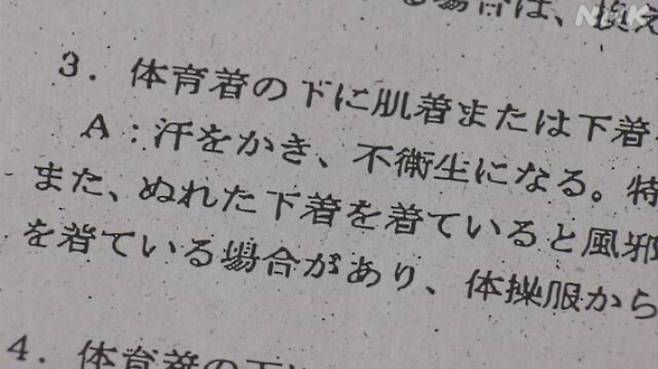 NHK
る場合は、換え
3．体育着の下に肌着または下着
A：汗をかき、不衛生になる。特
また、ぬれた下着を着ていると風邪
を着ている場合があり、体操服から
4．体育着の下に